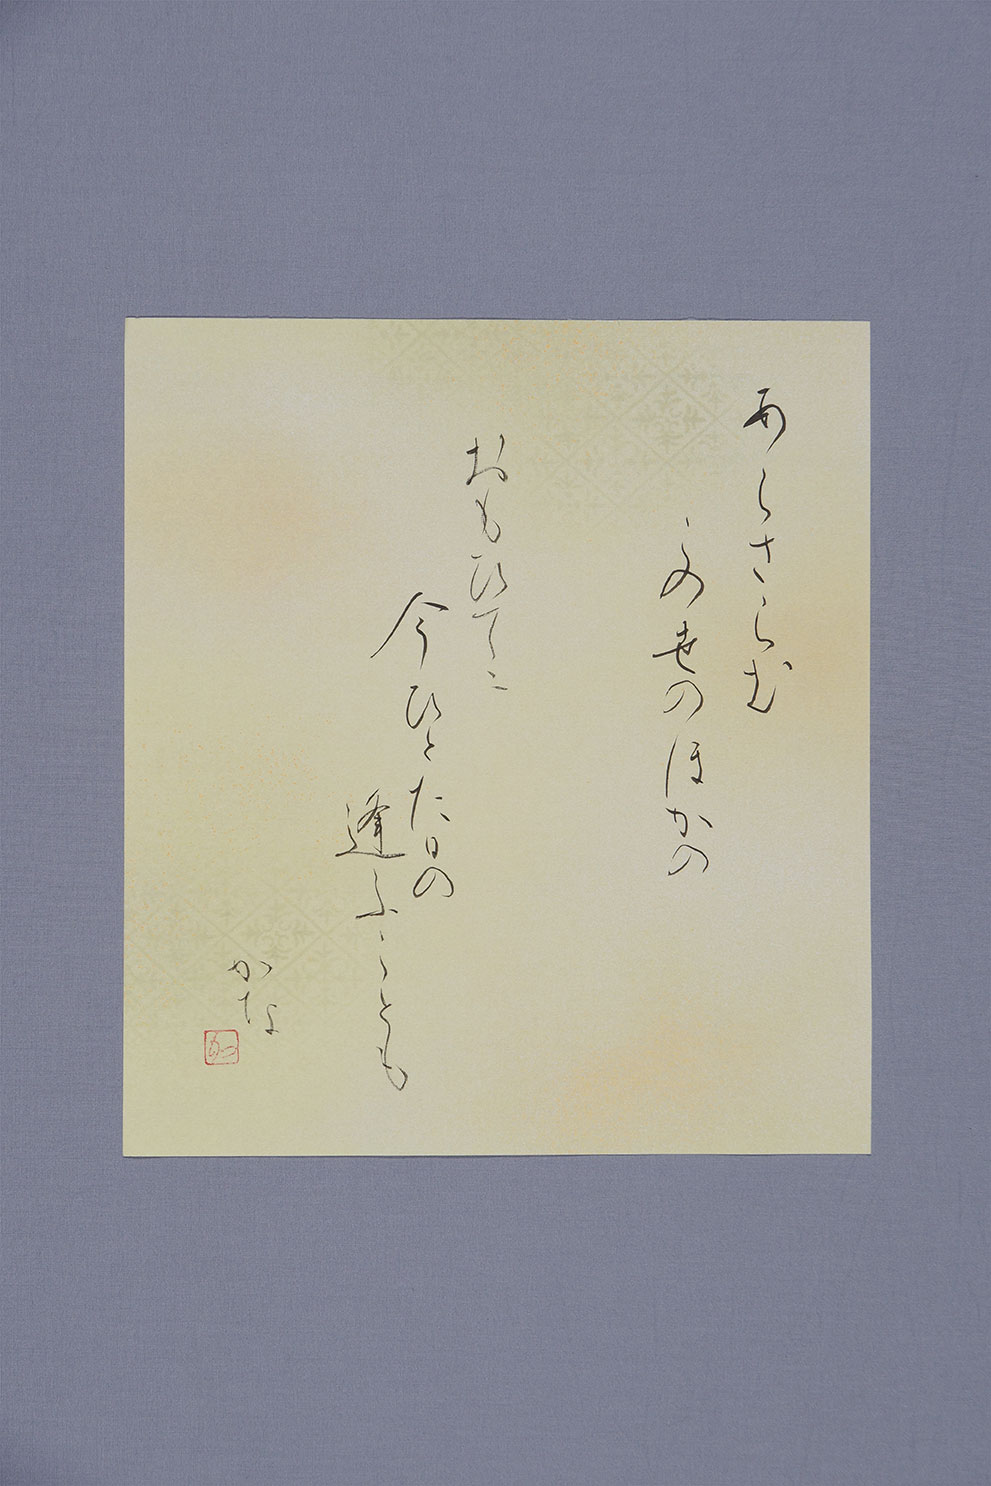 あらさらむ
このせのほかの
おもひてに
今ひとたひの
逢ふことも
かな